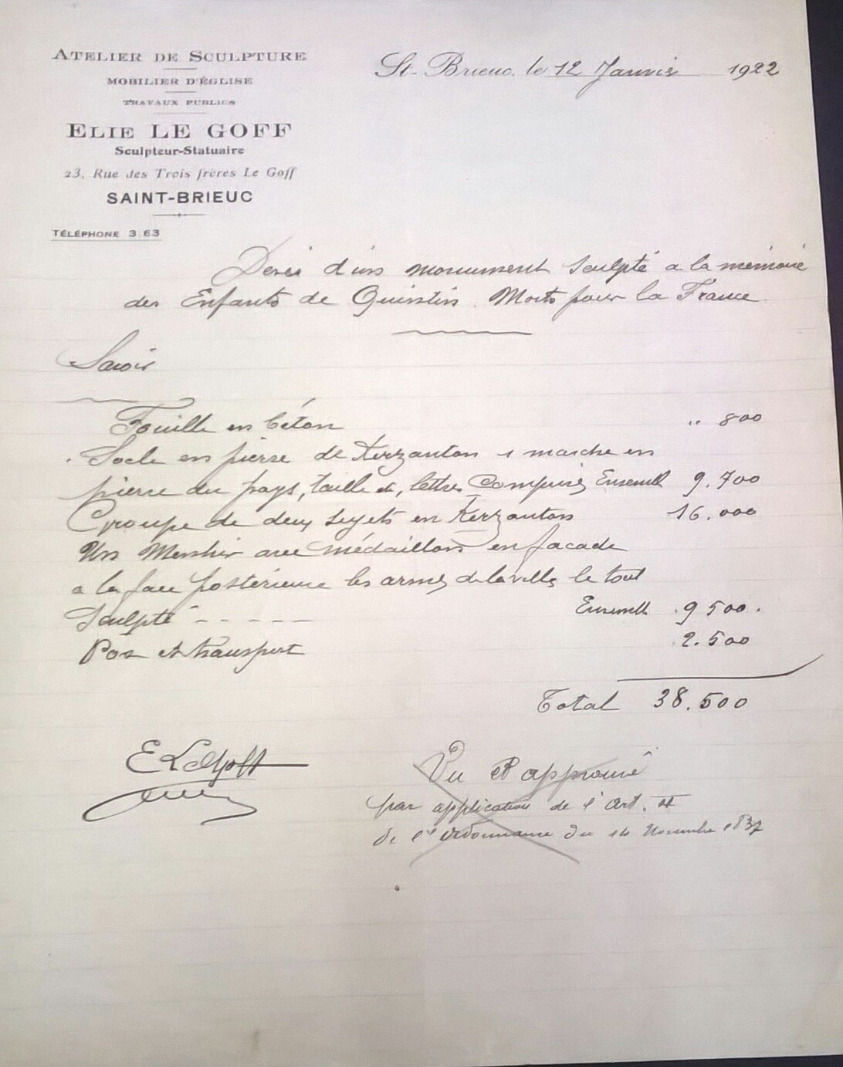 ATELIER DE SCULPTURE
MOBILIER D'ÉGLISE
TRAVAUX PUBLICS
ELIE LE GOFF
Sculpteur-Statuaire
23, Rue des Trois frères Le Goff
SAINT-BRIEUC
TÉLÉPHONE 3.63
St-Brieuc, le 12 Janvier 1922
Devis d'un monument sculpté a la mémoire
des Enfants de Quintin. Morts pour la France
Savoir
Fouille en béton " 800
Socle en pierre de Kerzanton 1 marche en
pierre du pays, taille et, lettres comprises Ensemble 9.700
Groupe de deux sujets en Kerzanton 16.000
Un Menhir avec médaillon en facade
a la face postérieure les armes de la ville le tout
Sculpté - - - - - Ensemble 9 500.
Pose et transport 2.500
Total 38.500
E Le Goff
Vu et approuvé
par application de l'Art.
de l'Ordonnance du 14 Novembre 1837